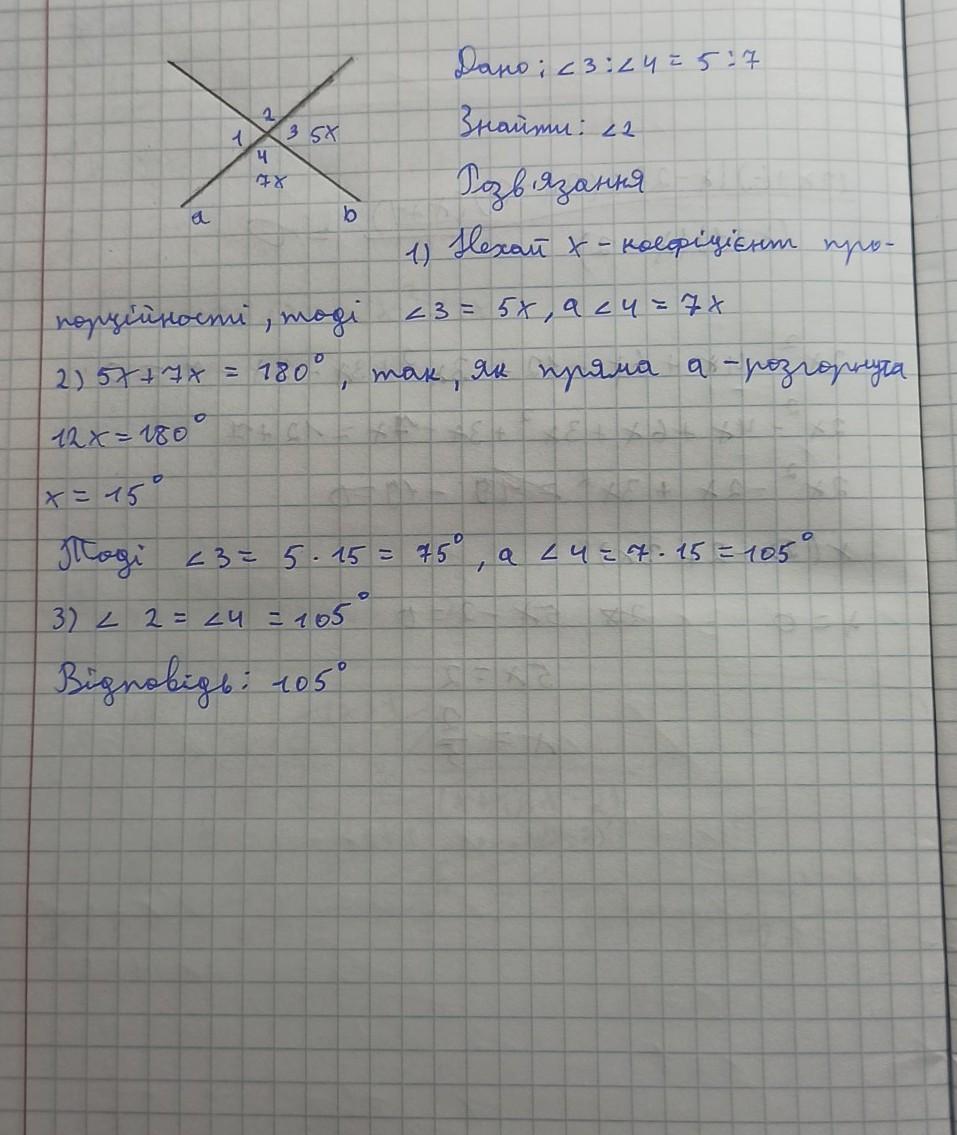 2
1 3 5x
4
7x
a b
Дано: ∠3:∠4 = 5:7
Знайти: ∠2
Розв'язання
1) Нехай x - коефіцієнт про-
порційності, тоді ∠3 = 5x, а ∠4 = 7x
2) 5x+7x = 180°, так, як пряма a - розгорнута
12x = 180°
x = 15°
Тоді ∠3 = 5 · 15 = 75°, а ∠4 = 7 · 15 = 105°
3) ∠ 2 = ∠4 = 105°
Відповідь: 105°